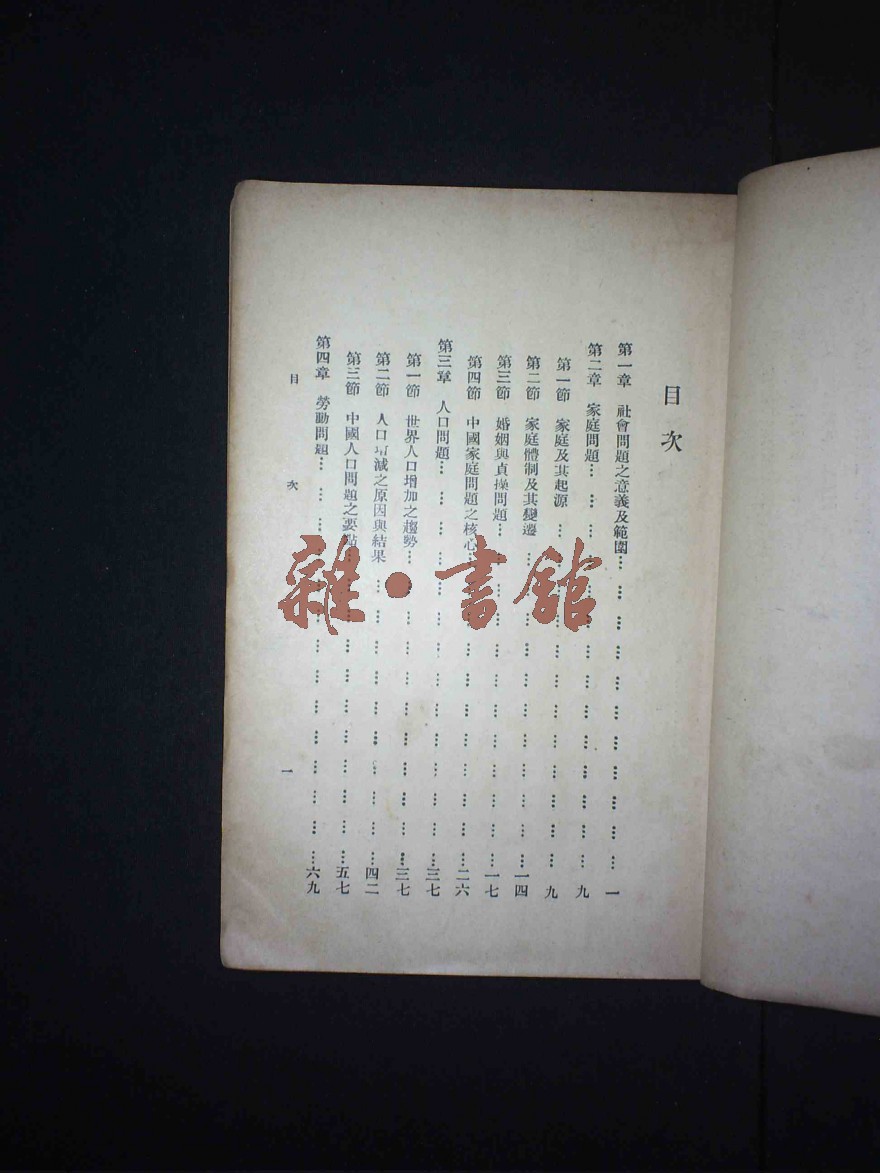 目次
第一章 社會問題之意義及範圍……一
第二章 家庭問題……九
第一節 家庭及其起源……九
第二節 家庭體制及其變遷……一四
第三節 婚姻與貞操問題……一七
第四節 中國家庭問題之核心……二六
第三章 人口問題……三七
第一節 世界人口增加之趨勢……三七
第二節 人口增減之原因與結果……四二
第三節 中國人口問題之要點……五七
第四章 勞動問題……六九
目 次 一
雜·書館